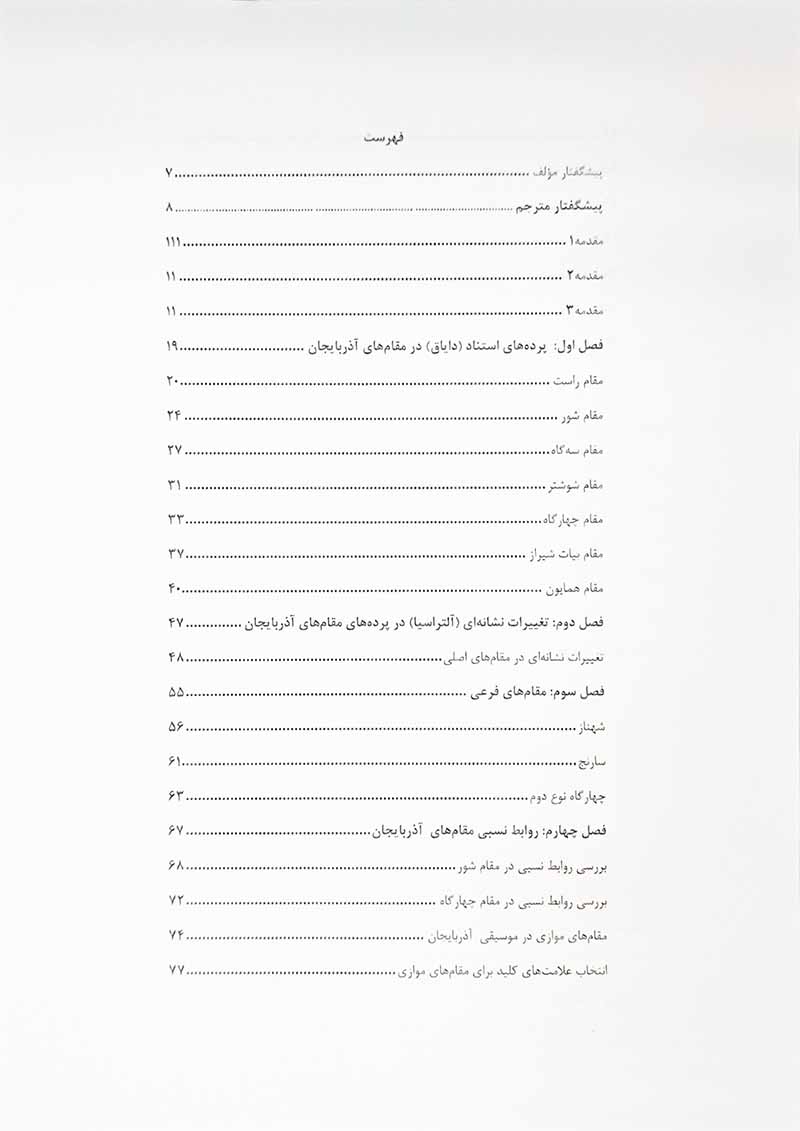 فهرست
پیشگفتار مؤلف ۷
پیشگفتار مترجم ۸
مقدمه۱ ۱۱۱
مقدمه۲ ۱۱
مقدمه۳ ۱۱
فصل اول: پرده‌های استناد (دایاق) در مقام‌های آذربایجان ۱۹
مقام راست ۲۰
مقام شور ۲۴
مقام سه‌گاه ۲۷
مقام شوشتر ۳۱
مقام چهارگاه ۳۳
مقام بیات شیراز ۳۷
مقام همایون ۴۰
فصل دوم: تغییرات نشانه‌ای (آلتراسیا) در پرده‌های مقام‌های آذربایجان ۴۷
تغییرات نشانه‌ای در مقام‌های اصلی ۴۸
فصل سوم: مقام‌های فرعی ۵۵
شهناز ۵۶
سارنج ۶۱
چهارگاه نوع دوم ۶۳
فصل چهارم: روابط نسبی مقام‌های آذربایجان ۶۷
بررسی روابط نسبی در مقام شور ۶۸
بررسی روابط نسبی در مقام چهارگاه ۷۲
مقام‌های موازی در موسیقی آذربایجان ۷۴
انتخاب علامت‌های کلید برای مقام‌های موازی ۷۷